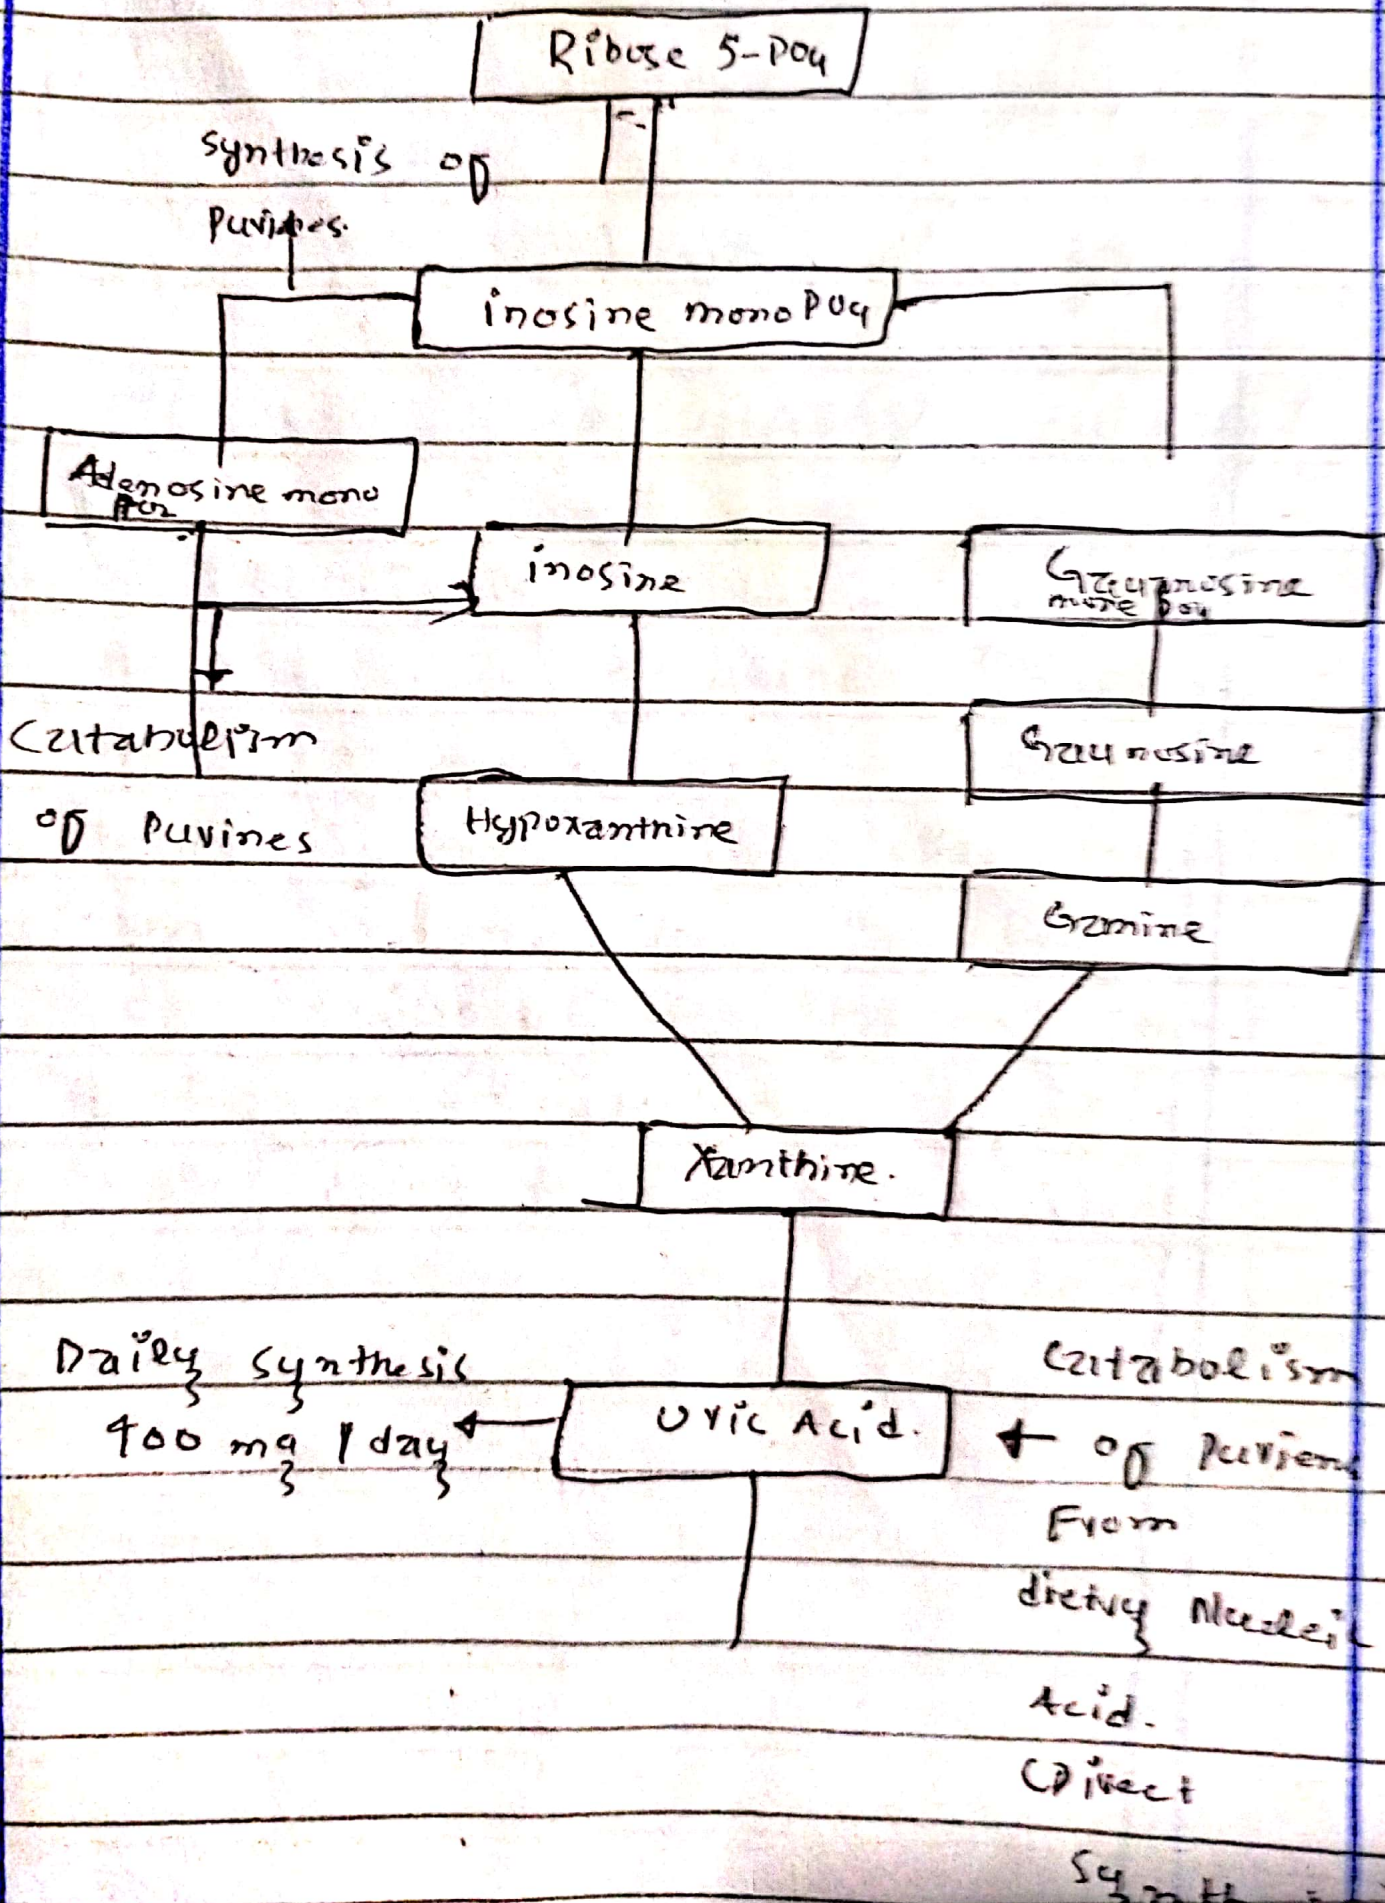 Ribose 5-PO4
synthesis of
Purines.
inosine mono PO4
Adenosine mono
inosine
Gaunosine
mono po4
Catabolism
of Purines
Gaunosine
Hypoxanthine
Xanthine.
Daily synthesis
400 mg / day
Uric Acid.
Catabolism
of Purien
From
dietry Nucleic
Acid.
(Direct